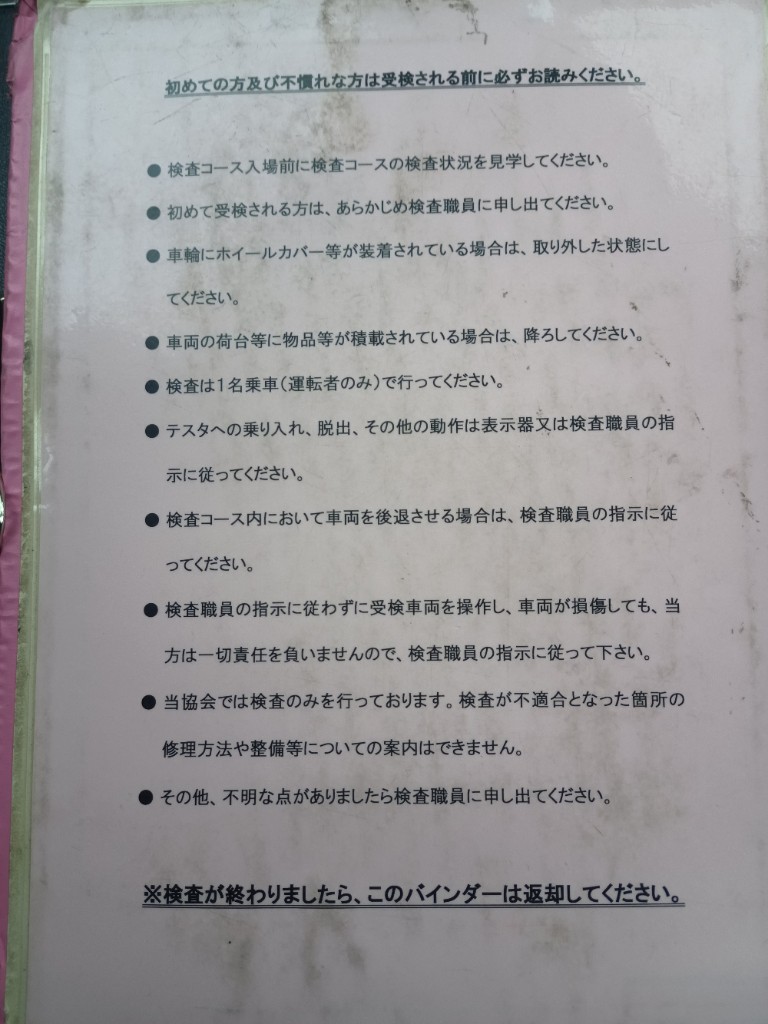 初めての方及び不慣れな方は受検される前に必ずお読みください。
● 検査コース入場前に検査コースの検査状況を見学してください。
● 初めて受検される方は、あらかじめ検査職員に申し出てください。
● 車輪にホイールカバー等が装着されている場合は、取り外した状態にし
てください。
● 車両の荷台等に物品等が積載されている場合は、降ろしてください。
● 検査は1名乗車(運転者のみ)で行ってください。
● テスタへの乗り入れ、脱出、その他の動作は表示器又は検査職員の指
示に従ってください。
● 検査コース内において車両を後退させる場合は、検査職員の指示に従
ってください。
● 検査職員の指示に従わずに受検車両を操作し、車両が損傷しても、当
方は一切責任を負いませんので、検査職員の指示に従って下さい。
● 当協会では検査のみを行っております。検査が不適合となった箇所の
修理方法や整備等についての案内はできません。
● その他、不明な点がありましたら検査職員に申し出てください。
※検査が終わりましたら、このバインダーは返却してください。